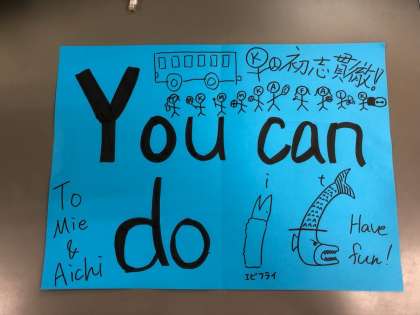 の初志貫徹!
You can
do i t
To
Mie
&
Aichi
エビフライ
Have
fun!